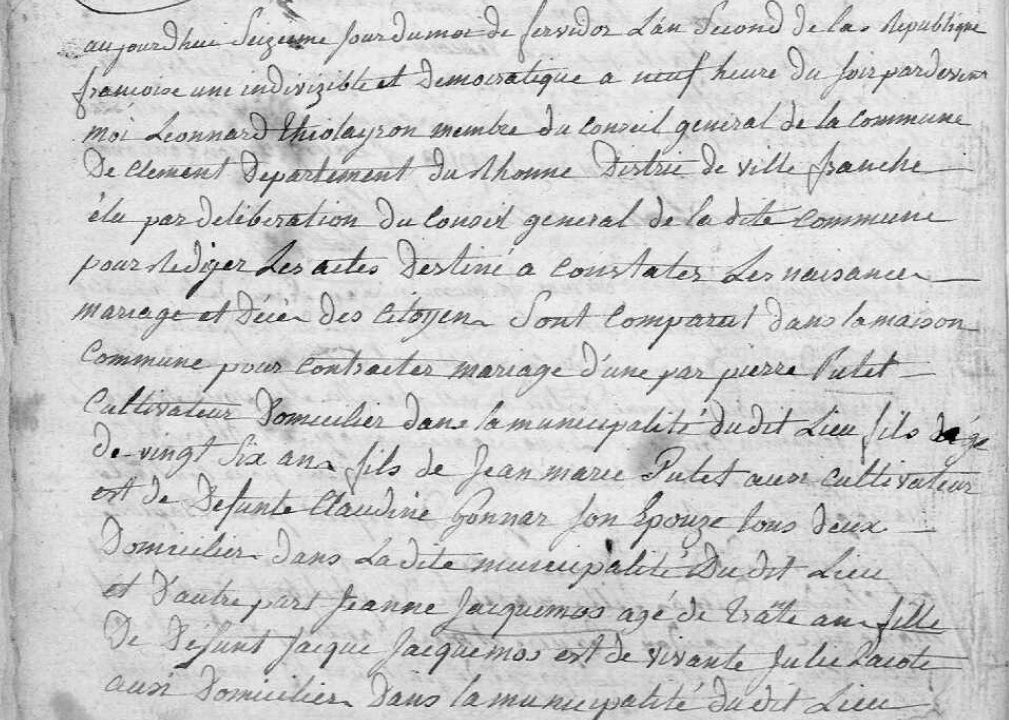 aujourdhui Seizieme jour du moi de fervidor Lan Second de la Republique
francoise une indivizible et Democratique a neuf heure du soir pardevent
moi Leonnard Thiolayron membre du Conseil general de la Commune
De Clement Departement du Rhonne District de ville franche
élu par deliberation du Conseil general de la dite Commune
pour Rediger Les actes Destiné a Constater Les naisance
mariage et Décès des Citoyen Sont Comparut dans la maison
Commune pour Contracter mariage d'une par pierre Putet
Cultivateur Domicilier dans la municipalité du dit Lieu fils age
de vingt Six ans fils de Jean marie Putet aussi Cultivateur
est de Defunte Claudine Gonnar son Epouze tous deux
Domicilier dans La dite municipalité Du dit Lieu
et D'autre part Jeanne Jacquemos agé de trate ans fille
De Défunt Jacque Jacquemos est de vivante Julie Lacote
aussi Domicilier Dans la municipalité du dit Lieu